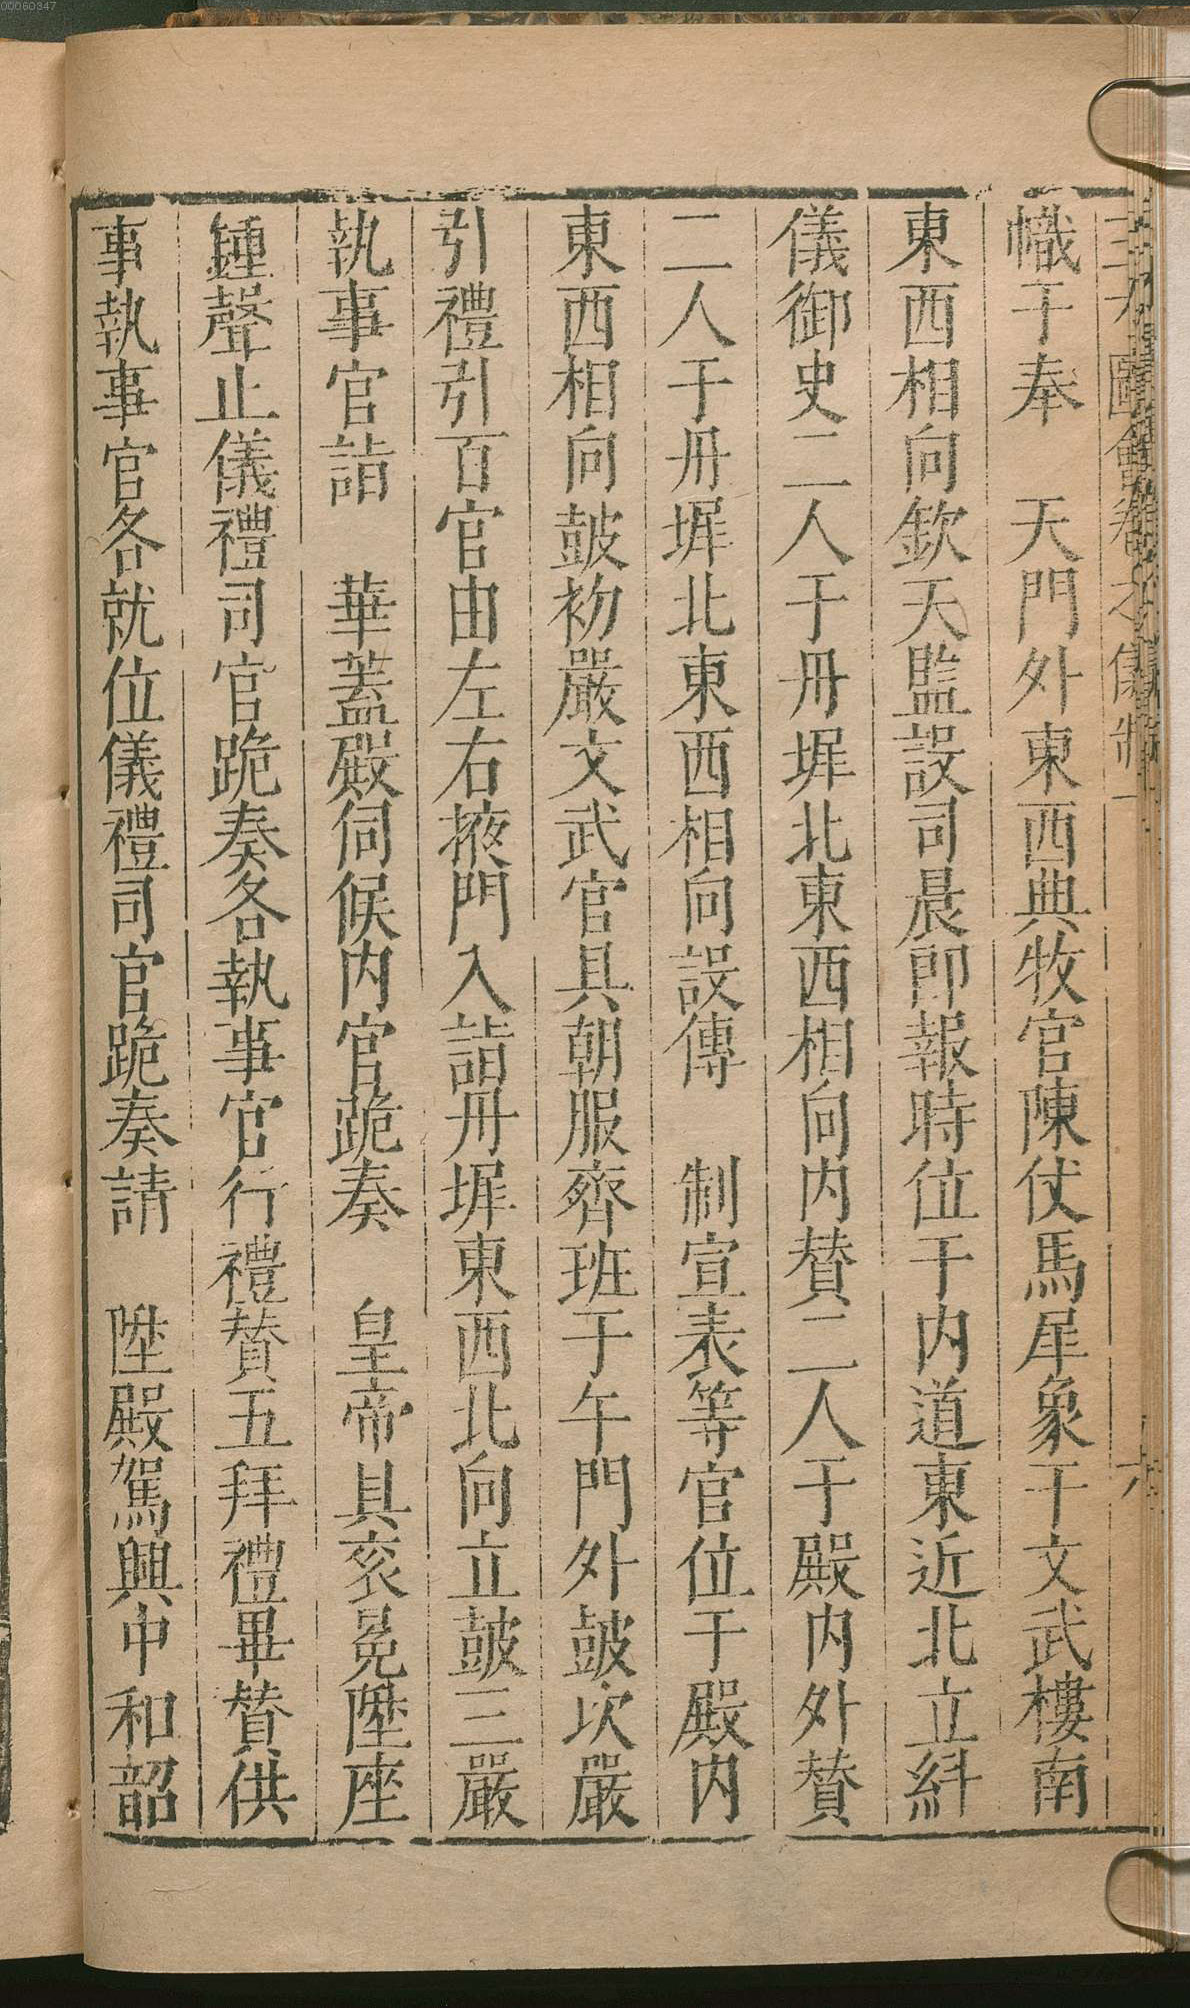 00060347
幟于奉　天門外東西典牧官陳仗馬犀象于文武樓南
東西相向欽天監設司晨郎報時位于內道東近北立糾
儀御史二人于丹墀北東西相向內賛二人于殿內外賛
二人于丹墀北東西相向設傳　制宣表等官位于殿內
東西相向鼓初嚴文武官具朝服齊班于午門外鼓次嚴
引禮引百官由左右掖門入詣丹墀東西北向立鼓三嚴
執事官詣　華蓋殿伺候內官跪奏　皇帝具衮冕陞座
鍾聲止儀禮司官跪奏各執事官行禮賛五拜禮畢賛供
事執事官各就位儀禮司官跪奏請　陞殿駕興中和韶